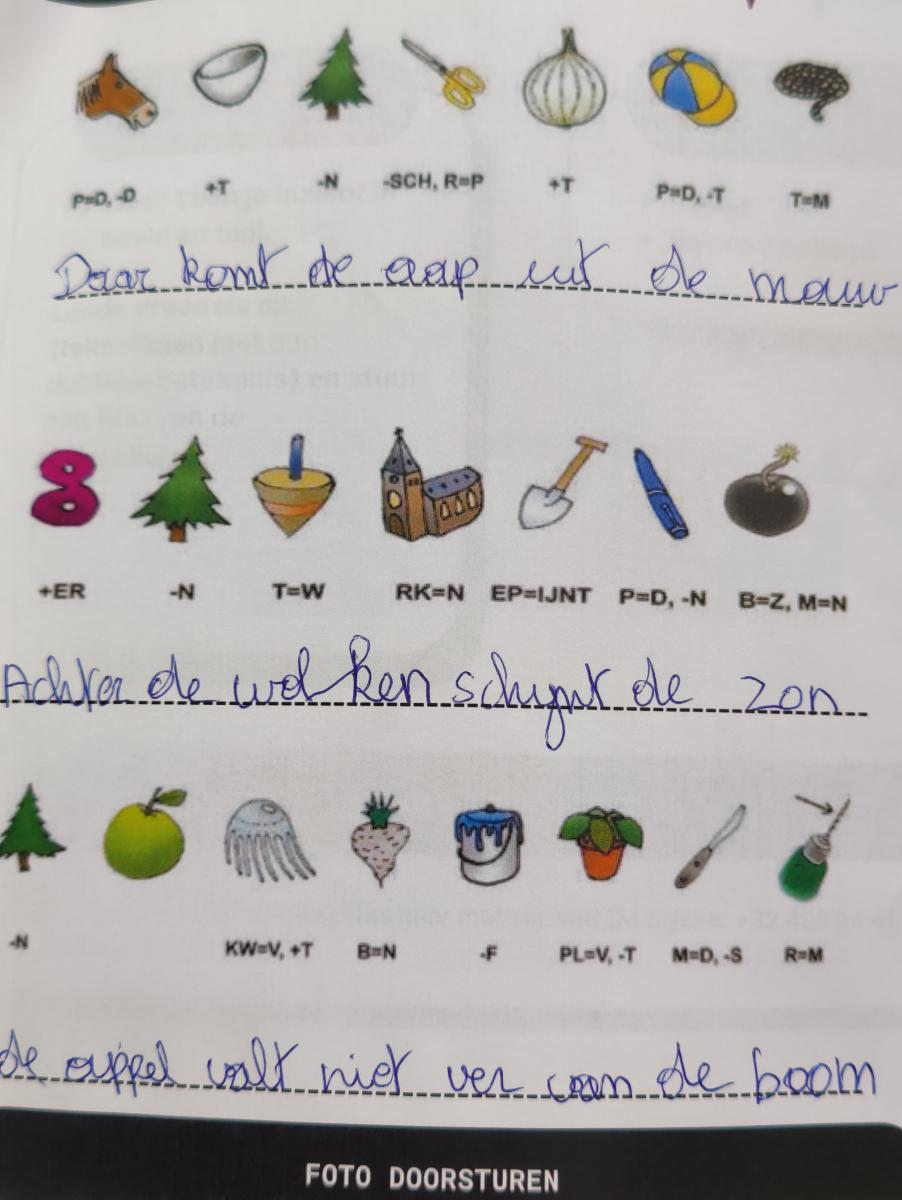 P=D, -D +T -N -SCH, R=P +T P=D, -T T=M
Daar komt de aap uit de mouw
+ER -N T=W RK=N EP=IJNT P=D, -N B=Z, M=N
Achter de wolken schijnt de zon
-N KW=V, +T B=N -F PL=V, -T M=D, -S R=M
de appel valt niet ver van de boom
FOTO DOORSTUREN